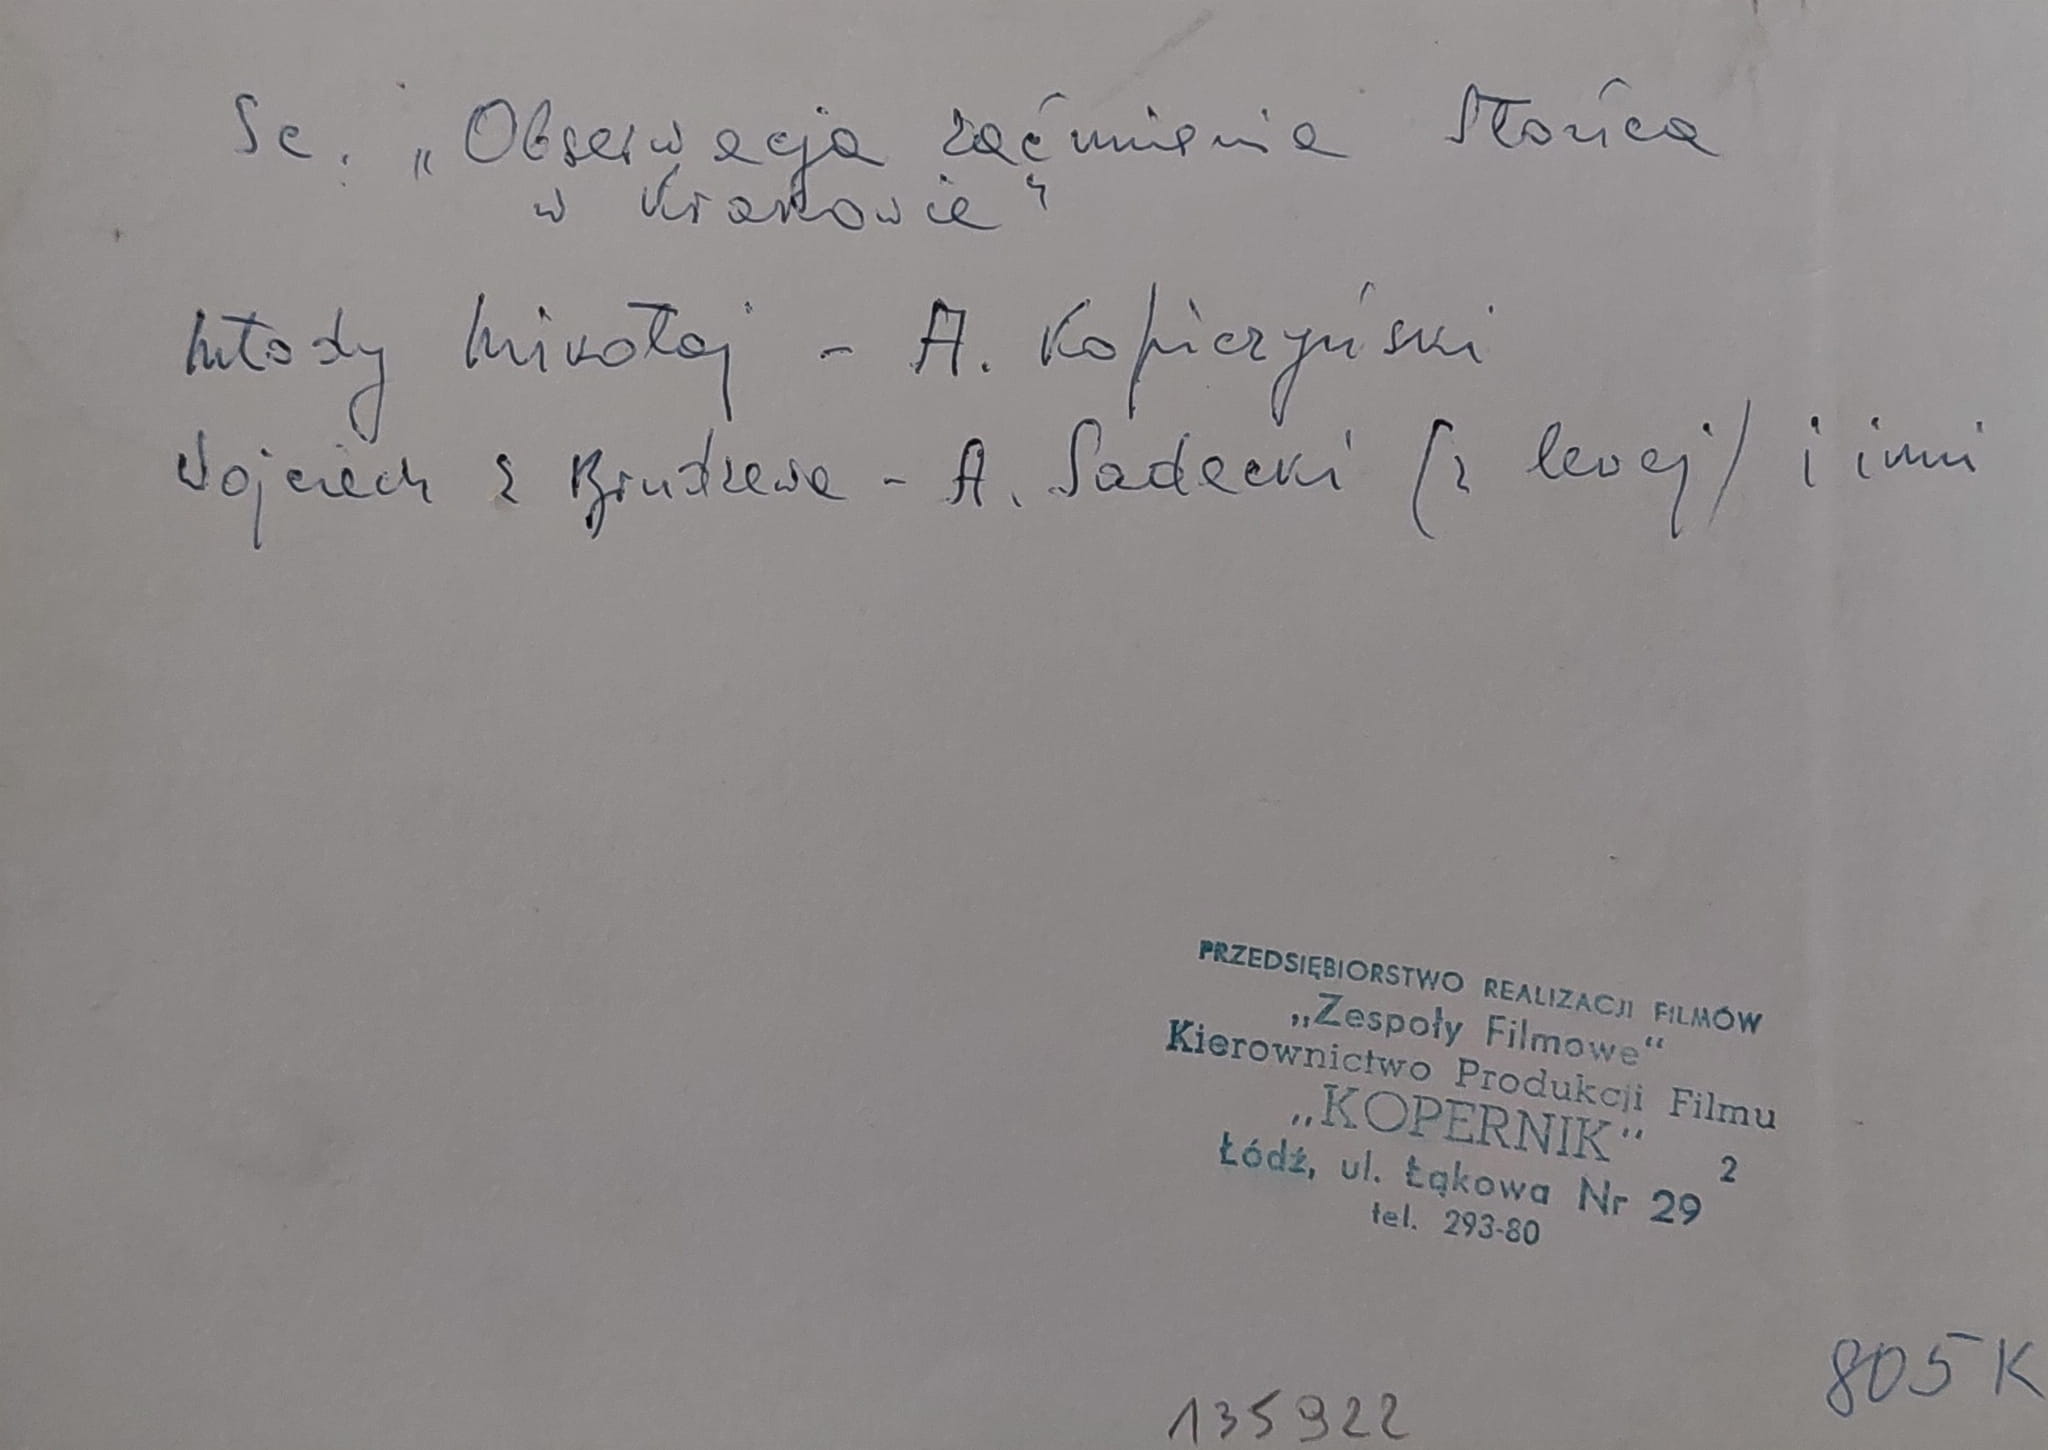 Sc. „Obserwacja zaćmienia Słońca
w Krakowie"
Młody Mikołaj - A. Kopiczyński
Wojciech z Brudzewa - A. Sadecki (z lewej) i inni
PRZEDSIĘBIORSTWO REALIZACJI FILMÓW
„Zespoły Filmowe"
Kierownictwo Produkcji Filmu
„KOPERNIK"
2
Łódź, ul. Łąkowa Nr 29
tel. 293-80
805K
135922